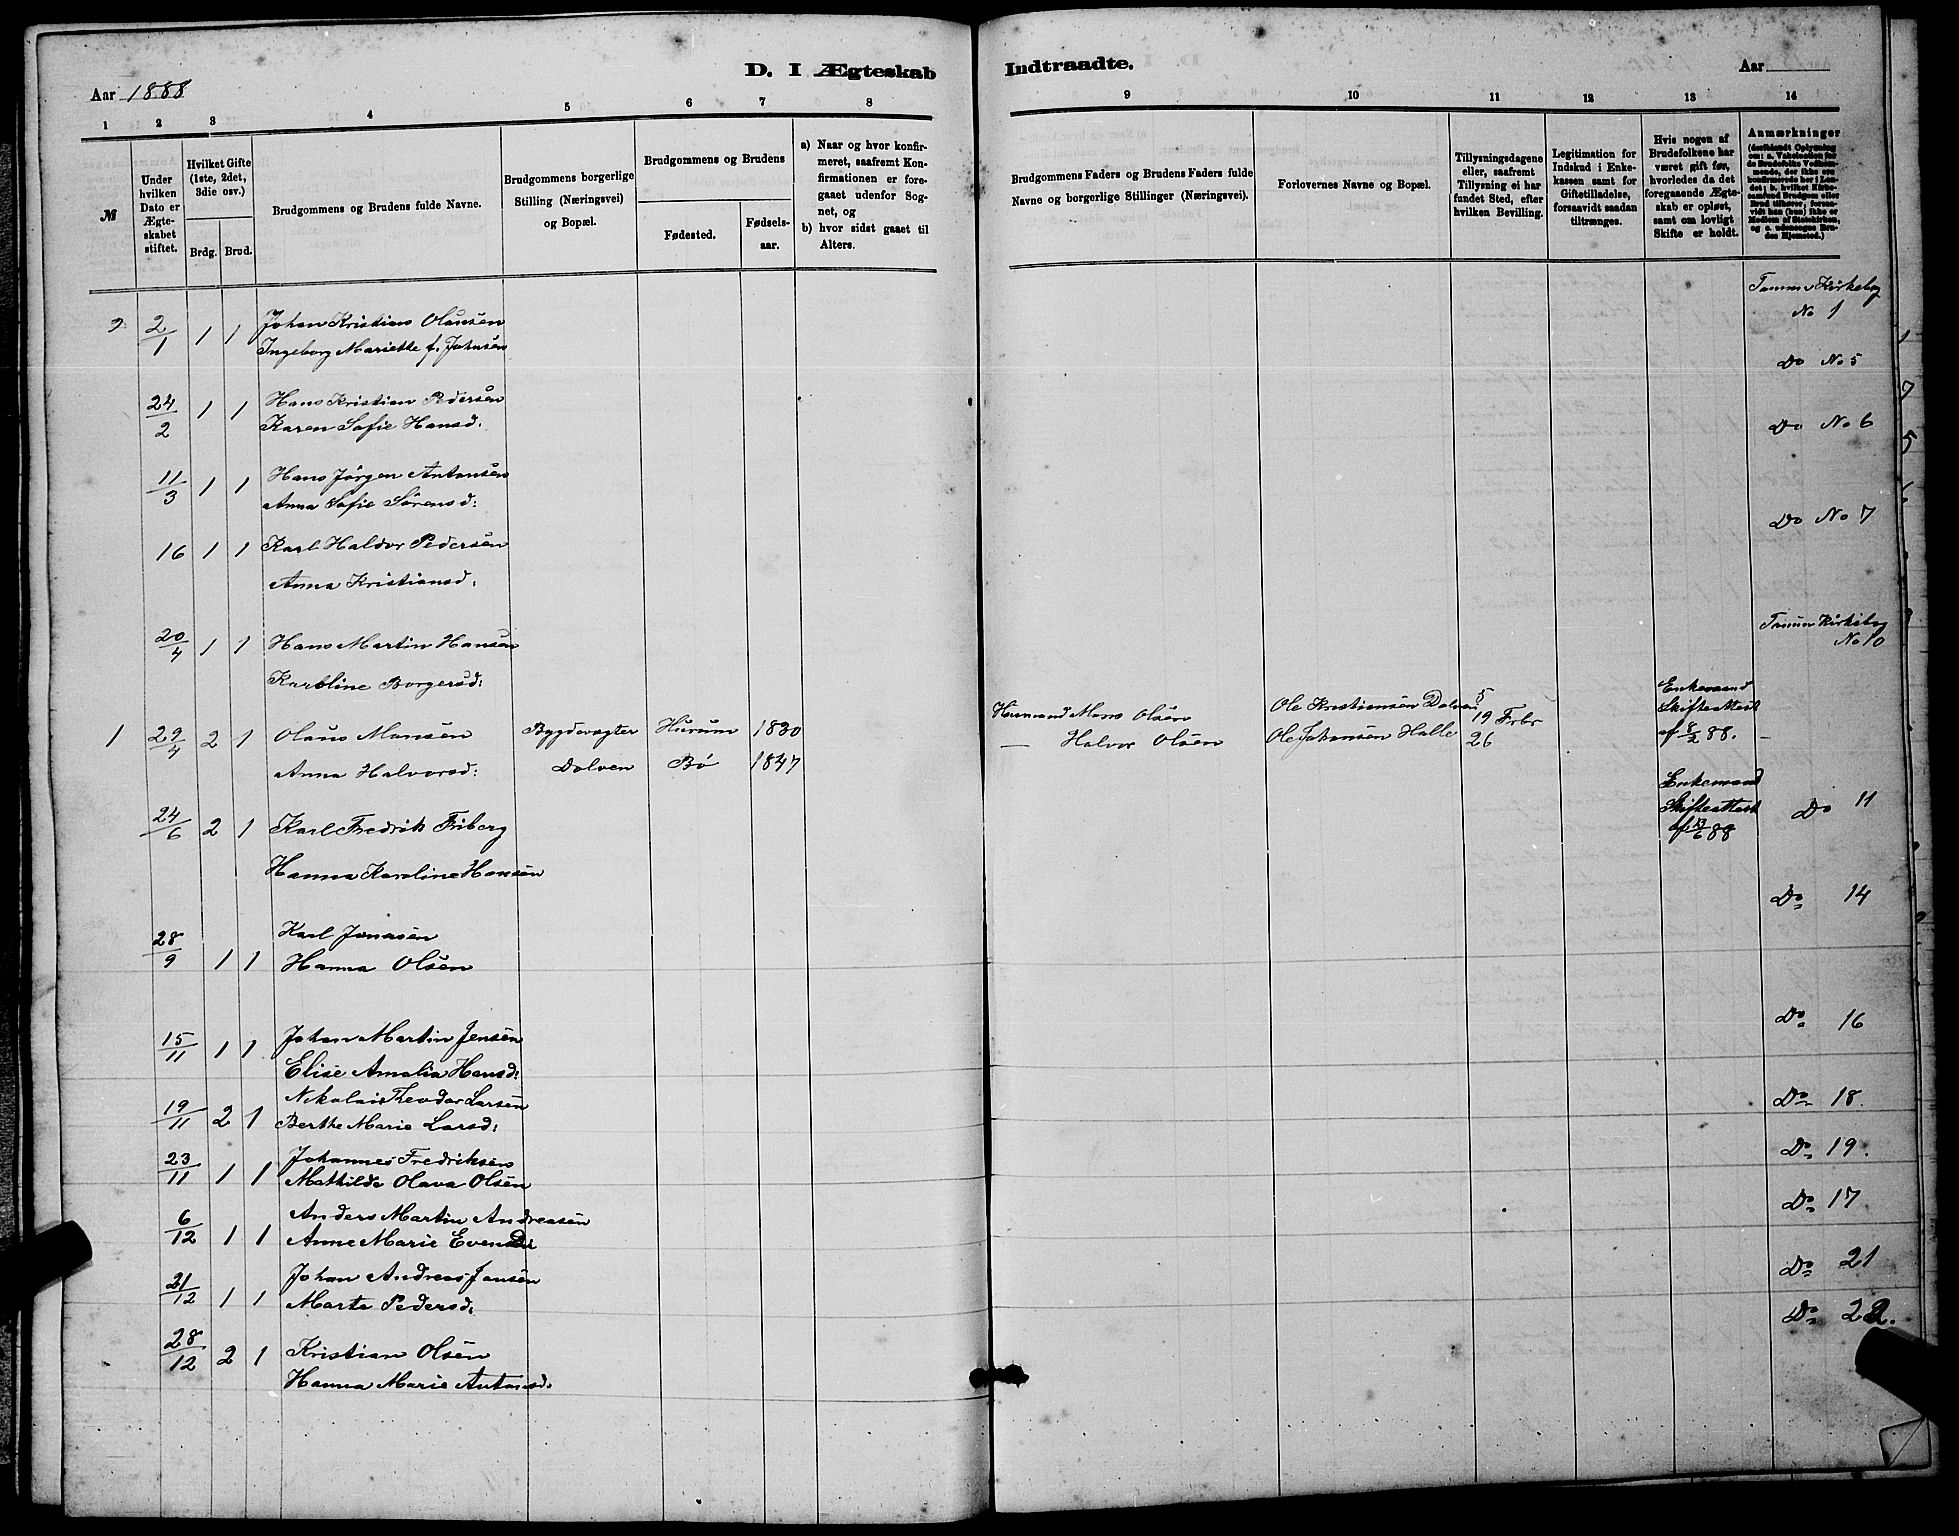 D. I Ægteskab Indtraadte.
Aar 1888
Aar
1 2 3 4 5 6 7 8 9 10 11 12 13 14
№
Under hvilken Dato er Ægteskabet stiftet.
Hvilket Gifte (1ste, 2det, 3die osv.)
Brdg. Brud.
Brudgommens og Brudens fulde Navne.
Brudgommens borgerlige Stilling (Næringsvei) og Bopæl.
Brudgommens og Brudens
Fødested. Fødselsaar.
a) Naar og hvor konfirmeret, saafremt Konfirmationen er foregaaet udenfor Sognet, og
b) hvor sidst gaaet til Alters.
Brudgommens Faders og Brudens Faders fulde Navne og borgerlige Stillinger (Næringsvei).
Forlovernes Navne og Bopæl.
Tillysningsdagene eller, saafremt Tillysning ei har fundet Sted, efter hvilken Bevilling.
Legitimation for Indskud i Enkekassen samt for Giftetilladelse, forsaavidt saadan tiltrænges.
Hvis nogen af Brudefolkene har været gift før, hvorledes da det foregaaende Ægteskab er opløst, samt om lovligt Skifte er holdt.
Anmærkninger
2/1 1 1 Johan Kristian Olausen
Ingeborg Mariette f. Johnsen
Tanum Kirkebog No 1
24/2 1 1 Hans Kristian Pedersen
Karen Sofie Hansd:
Do No 5
11/3 1 1 Hans Jørgen Antonsen
Anna Sofie Sørensd:
Do No 6
16 1 1 Karl Haldor Pedersen
Anna Kristiansd:
Do No 7
20/4 1 1 Hans Martin Hansen
Karoline Borgersd:
Tanum Kirkebog No 10
1 29/4 2 1 Olaus Monsen Bygdevægter Hurum 1830
Anna Halvorsd: Dolven Bø 1847
Huusmand Mons Olsen Ole Kristiansen Dolven 5
— Halvor Olsen Ole Johansen Halle 19 Febr
26
Enkemand
Skifteattest
af 8/2 88.
24/6 2 1 Karl Fredrik Friberg
Hanna Karoline Hansen
Enkemand
Skifteattest
Do 11
28/9 1 1 Karl Jonassen
Hanna Olsen
Do 14
15/11 1 1 Johan Martin Jensen
Elise Amalia Hansd:
Do 16
19/11 2 1 Nikolai Theodor Larsen
Berthe Marie Larsd:
Do 18.
23/11 1 1 Johannes Fredriksen
Mathilde Olava Olsen
Do 19.
6/12 1 1 Anders Martin Andreasen
Anne Marie
Do 17
21/12 1 1 Johan Andreas Jansen
Marte Pedersd:
Do 21
28/12 2 1 Kristian Olsen
Hanna Marie Antonsd:
Do 22.